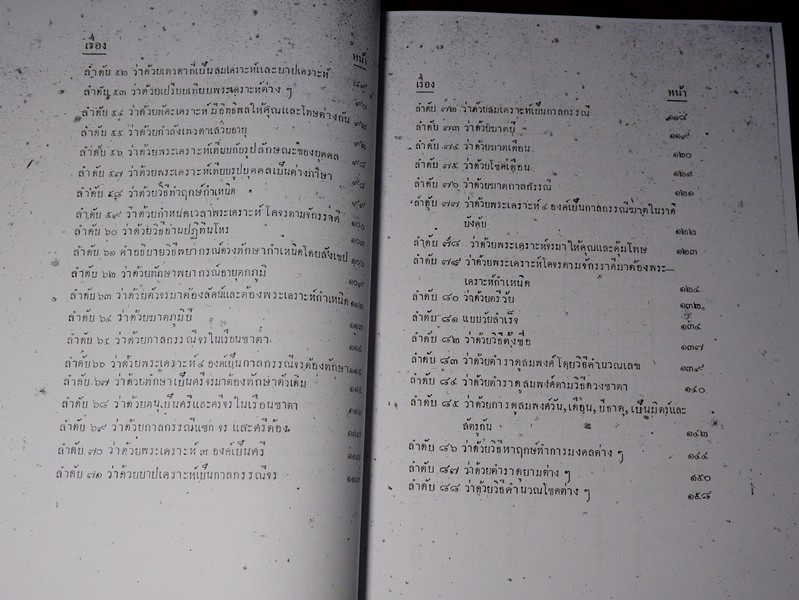 เรื่อง
หน้า
ลำดับ ๕๒ ว่าด้วยเทวดาที่เป็นสมเคราะห์และบาปเคราะห์ ๘๙
ลำดับ ๕๓ ว่าด้วยเปรียบเทียบพระเคราะห์ต่าง ๆ
ลำดับ ๕๔ ว่าด้วยทศเคราะห์มีอิทธิพลให้คุณและโทษต่างกัน ๙๒
ลำดับ ๕๕ ว่าด้วยกำลังเทวดาเสวยอายุ
ลำดับ ๕๖ ว่าด้วยพระเคราะห์เทียบกับรูปลักษณะของบุคคล ๙๘
ลำดับ ๕๗ ว่าด้วยพระเคราะห์เทียบรูปบุคคลเป็นต่างภาษา ๙๘
ลำดับ ๕๘ ว่าด้วยวิธีทำฤกษ์กำเหนิด ๙๙
ลำดับ ๕๙ ว่าด้วยกำหนดเวลาพระเคราะห์โคจรตามจักรราศี ๑๐๐
ลำดับ ๖๐ ว่าด้วยวิธีอ่านปฏิทินโหร ๑๐๓
ลำดับ ๖๑ คำอธิบายวิธีพยากรณ์ดวงทักษากำเหนิดโดยสังเขป ๑๐๖
ลำดับ ๖๒ ว่าด้วยทักษาพยากรณ์อายุตกภูมิ ๑๐๙
ลำดับ ๖๓ ว่าด้วยตัวจรมาต้องลัคน์และต้องพระเคราะห์กำเหนิด ๑๑๒
ลำดับ ๖๔ ว่าด้วยฆาตภูมิปี ๑๑๓
ลำดับ ๖๕ ว่าด้วยกาลกรรณีจรในเรือนชาตา ๑๑๔
ลำดับ ๖๖ ว่าด้วยพระเคราะห์ ๔ องค์เป็นกาลกรรณีจรต้องทักษา ๑๑๕
ลำดับ ๖๗ ว่าด้วยทักษาเป็นศรีจรมาต้องทักษาตัวเดิม
ลำดับ ๖๘ ว่าด้วยมนูเป็นศรีและศรีจรในเรือนชาตา ๑๑๖
ลำดับ ๖๙ ว่าด้วยกาลกรรณีแซกจรและศรีต้อง ๑๑๗
ลำดับ ๗๐ ว่าด้วยพระเคราะห์ ๓ องค์เป็นศรี ๑๑๗
ลำดับ ๗๑ ว่าด้วยบาปเคราะห์เป็นกาลกรรณีจร ๑๑๗
เรื่อง
หน้า
ลำดับ ๗๒ ว่าด้วยสมเคราะห์เป็นกาลกรรณี ๑๑๘
ลำดับ ๗๓ ว่าด้วยฆาตปี ๑๑๙
ลำดับ ๗๔ ว่าด้วยฆาตเดือน ๑๒๐
ลำดับ ๗๕ ว่าด้วยโชคเดือน ๑๒๑
ลำดับ ๗๖ ว่าด้วยฆาตกาลกรรณี ๑๒๑
ลำดับ ๗๗ ว่าด้วยพระเคราะห์ ๔ องค์เป็นกาลกรรณีฆาตในราศี
บังคับ ๑๒๒
ลำดับ ๗๘ ว่าด้วยพระเคราะห์จรมาให้คุณและคุ้มโทษ ๑๒๓
ลำดับ ๗๙ ว่าด้วยพระเคราะห์โคจรตามจักรราศีมาต้องพระ-
เคราะห์กำเหนิด ๑๒๔
ลำดับ ๘๐ ว่าด้วยตรีวัย ๑๓๒
ลำดับ ๘๑ แบบวัยสำเร็จ ๑๓๔
ลำดับ ๘๒ ว่าด้วยวิธีตั้งชื่อ ๑๓๗
ลำดับ ๘๓ ว่าด้วยตำราดูสมพงศ์โดยวิธีคำนวณเลข ๑๓๙
ลำดับ ๘๔ ว่าด้วยตำราดูสมพงศ์ตามวิธีดวงชาตา ๑๔๐
ลำดับ ๘๕ ว่าด้วยการดูสมพงศ์วัน,เดือน,ปีธาตุ,เป็นมิตร์และ
สัตรูกัน ๑๔๒
ลำดับ ๘๖ ว่าด้วยวิธีหาฤกษ์ทำการมงคลต่าง ๆ ๑๔๔
ลำดับ ๘๗ ว่าด้วยตำราดูยามต่าง ๆ ๑๕๐
ลำดับ ๘๘ ว่าด้วยวิธีคำนวณโชคต่าง ๆ ๑๕๘